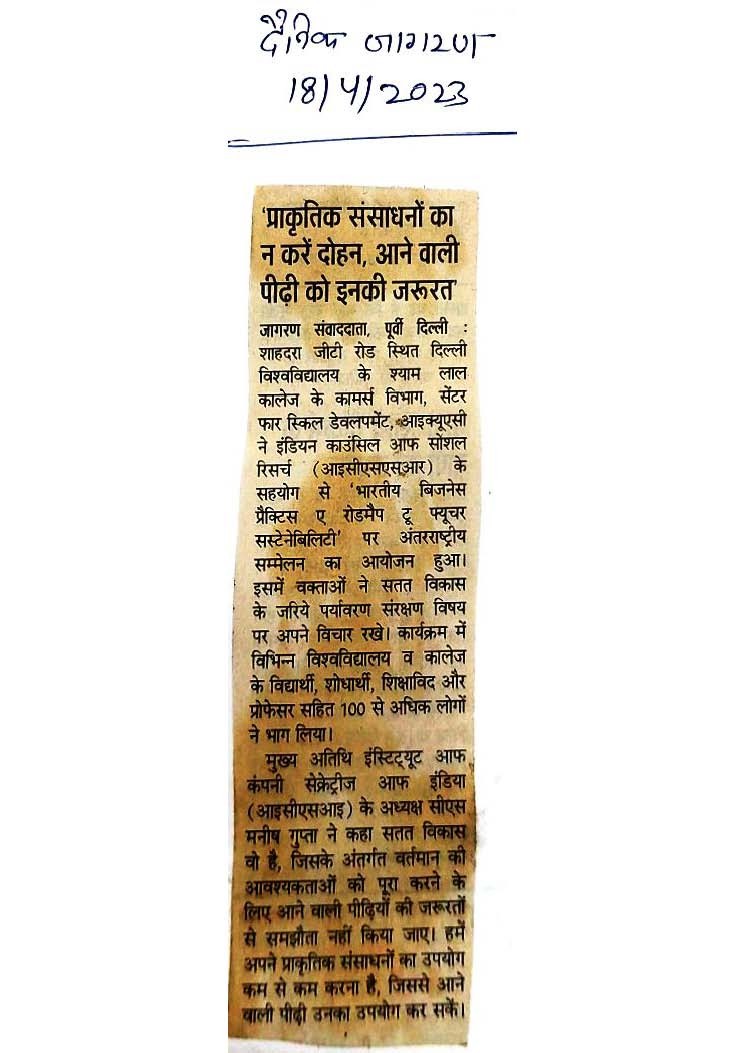 दैनिक जागरण
18/4/2023
'प्राकृतिक संसाधनों का
न करें दोहन, आने वाली
पीढ़ी को इनकी जरूरत'
जागरण संवाददाता, पूर्वी दिल्ली :
शाहदरा जीटी रोड स्थित दिल्ली
विश्वविद्यालय के श्याम लाल
कालेज के कामर्स विभाग, सेंटर
फार स्किल डेवलपमेंट, आइक्यूएसी
ने इंडियन काउंसिल आफ सोशल
रिसर्च (आइसीएसएसआर) के
सहयोग से 'भारतीय बिजनेस
प्रैक्टिस ए रोडमैप टू फ्यूचर
सस्टेनेबिलिटी' पर अंतरराष्ट्रीय
सम्मेलन का आयोजन हुआ।
इसमें वक्ताओं ने सतत विकास
के जरिये पर्यावरण संरक्षण विषय
पर अपने विचार रखे। कार्यक्रम में
विभिन्न विश्वविद्यालय व कालेज
के विद्यार्थी, शोधार्थी, शिक्षाविद और
प्रोफेसर सहित 100 से अधिक लोगों
ने भाग लिया।
मुख्य अतिथि इंस्टिट्यूट आफ
कंपनी सेक्रेट्रीज आफ इंडिया
(आइसीएसआइ) के अध्यक्ष सीएस
मनीष गुप्ता ने कहा सतत विकास
वो है, जिसके अंतर्गत वर्तमान की
आवश्यकताओं को पूरा करने के
लिए आने वाली पीढ़ियों की जरूरतों
से समझौता नहीं किया जाए। हमें
अपने प्राकृतिक संसाधनों का उपयोग
कम से कम करना है, जिससे आने
वाली पीढ़ी उनका उपयोग कर सकें।